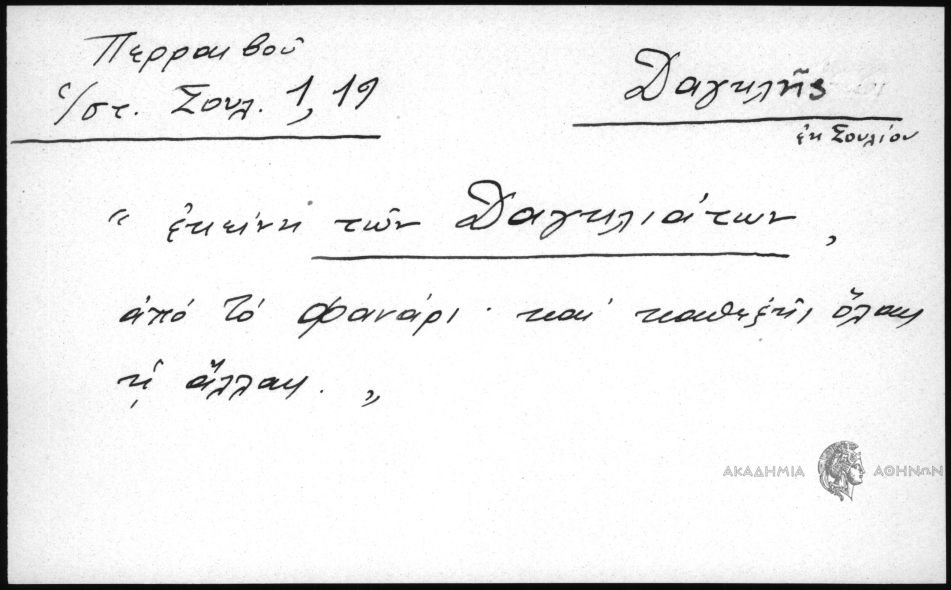 Περραιβοῦ
Ἱστ. Σουλ. 1, 19
Δαγκλῆς
ἐκ Σουλίου
“ ἐκείνη τῶν Δαγκλιάτων,
ἀπό τό Φανάρι· καί καθεξῆς ὅλαι
ᾑ ἄλλαι. „
ΑΚΑΔΗΜΙΑ ΑΘΗΝΩΝ